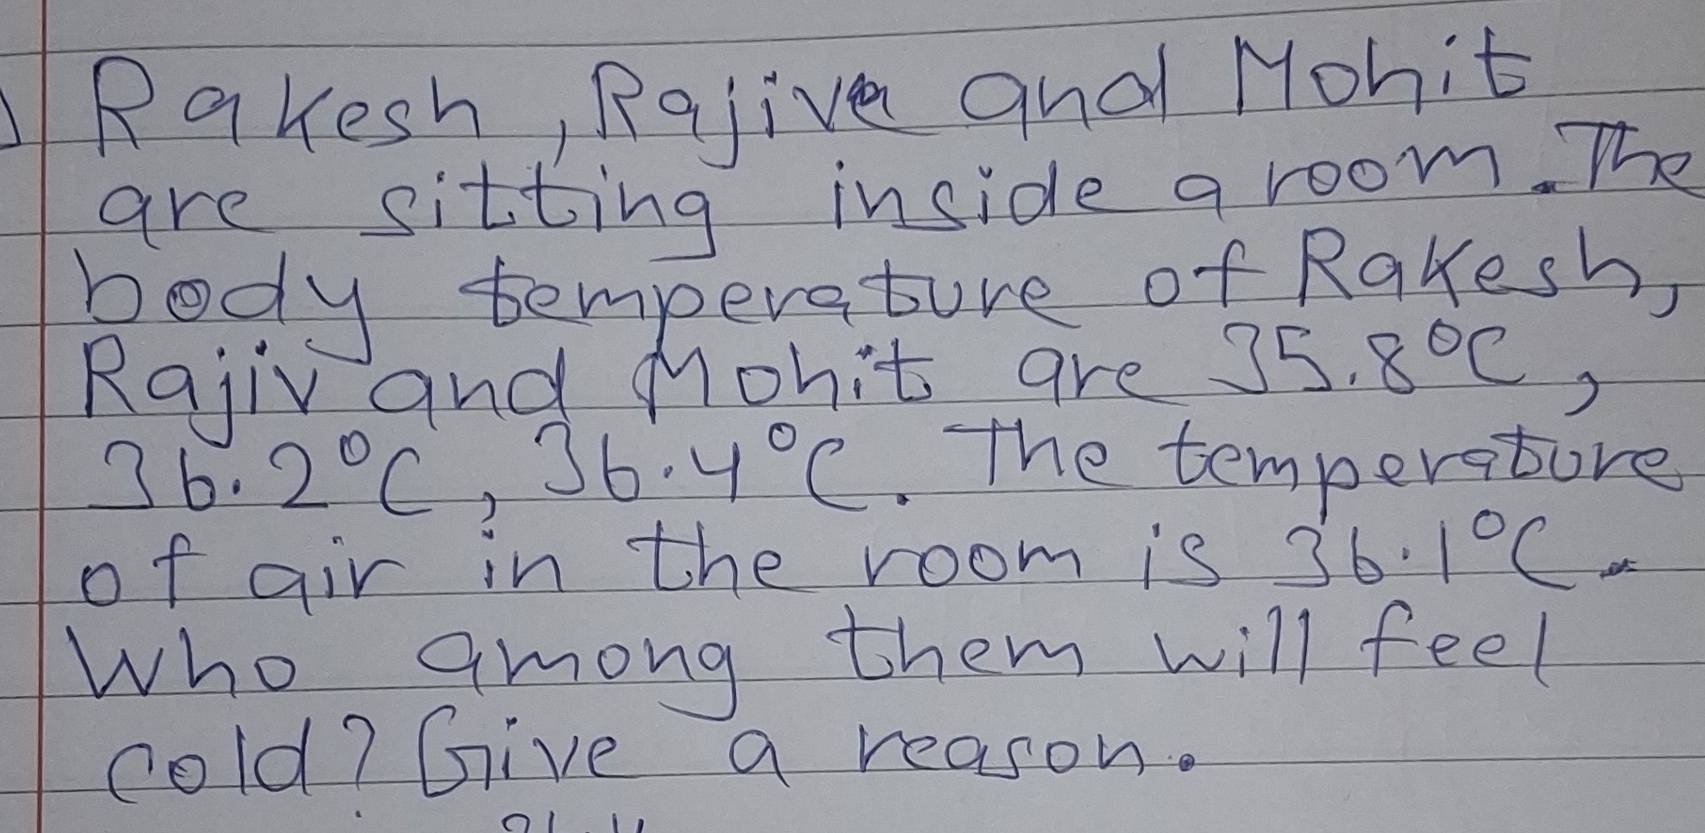 Rakesh, Rajiv and Mohit
are sitting inside a room. The
body temperature of Rakesh,
Rajiv and Mohit are 35.8°C,
36.2°C, 36.4°C. The temperature
of air in the room is 36.1°C.
Who among them will feel
cold? Give a reason.